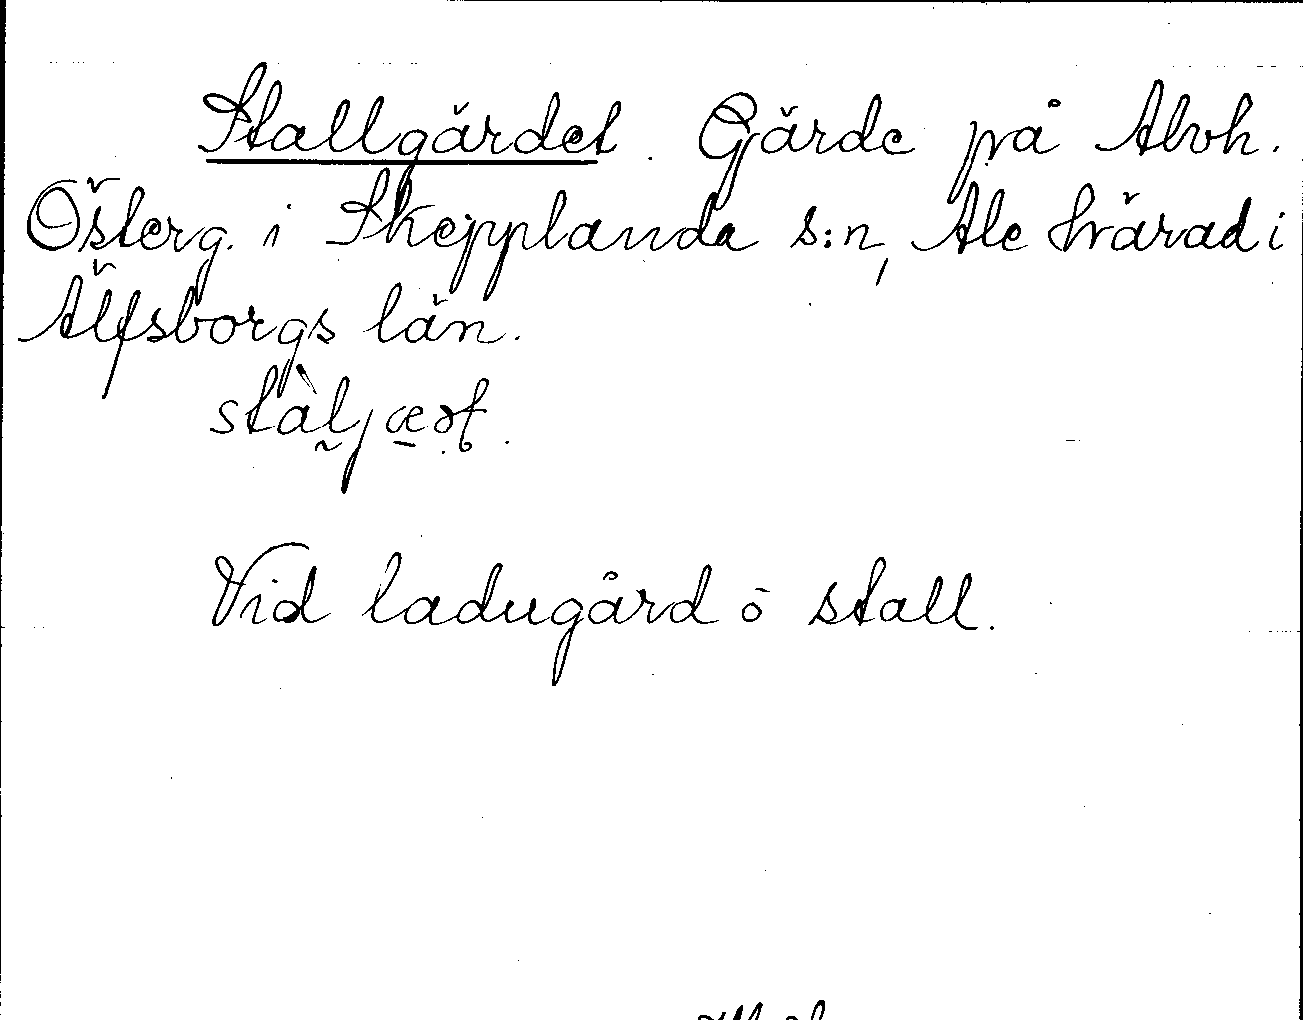 Stallgärdet. Gärde på Alvh.
Österg. i Skepplanda s:n, Ale härad i
Älfsborgs län.
Vid ladugård ö stall.